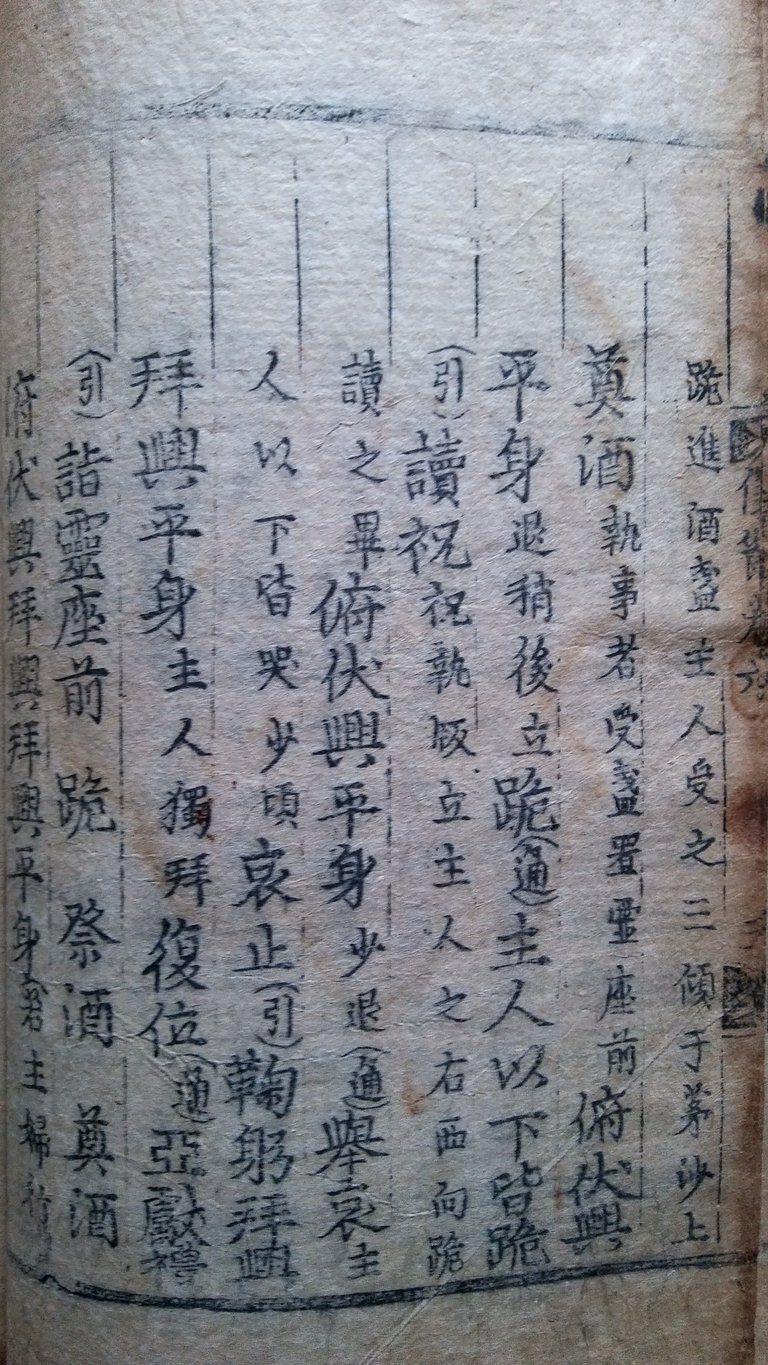 跪進酒盞主人受之三傾于茅沙上
奠酒執事者受盞置靈座前俯伏興
平身退稍後立跪(通)主人以下皆跪
(引)讀祝祝執版立主人之右西向跪
讀之畢俯伏興平身少退(通)舉哀主
人以下皆哭少頃哀止(引)鞠躬拜興
拜興平身主人獨拜復位(通)亞獻禮
(引)詣靈座前 跪 祭酒 奠酒
俯伏興拜興拜興平身若主婦行